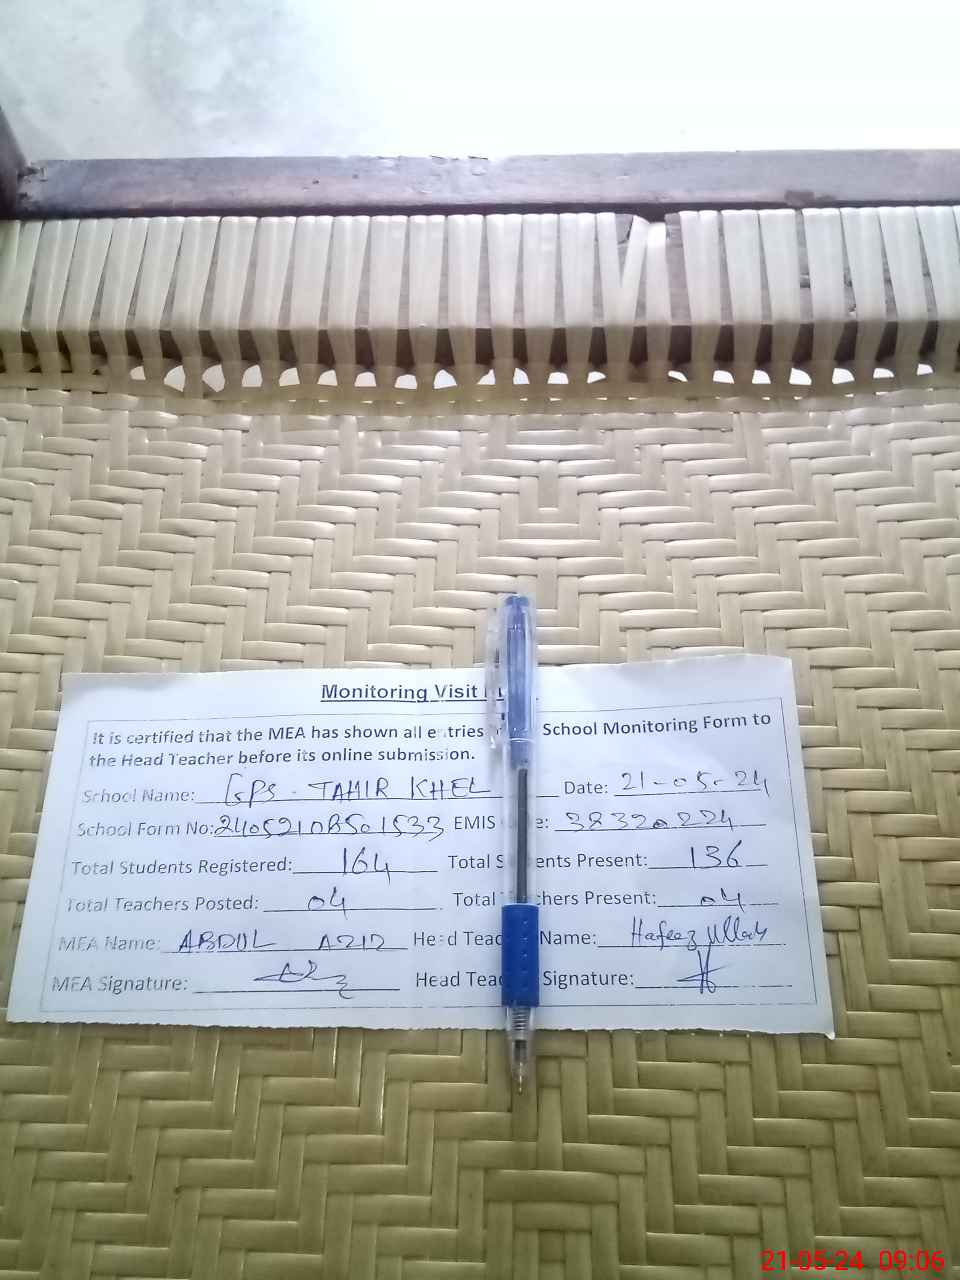 Monitoring Visit
It is certified that the MEA has shown all entries School Monitoring Form to
the Head Teacher before its online submission.
School Name: GPS - TAHIR KHEL Date: 21-05-24
School Form No: 24052108501533 EMIS e: 38320224
Total Students Registered: 164 Total S ents Present: 136
Total Teachers Posted: 04 Total chers Present: 04
MEA Name: ABDUL AZIZ Head Teac Name: Hafeez ullah
MEA Signature: Head Teac Signature:
21-05-24 09:06